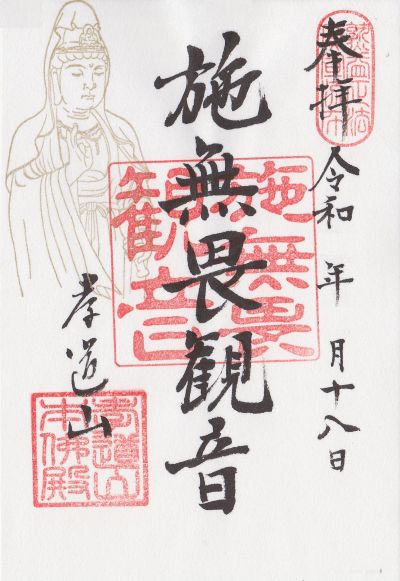 奉拝
令和 年 月十八日
施無畏観音
施無畏
観音
孝道山
孝道山
本佛殿